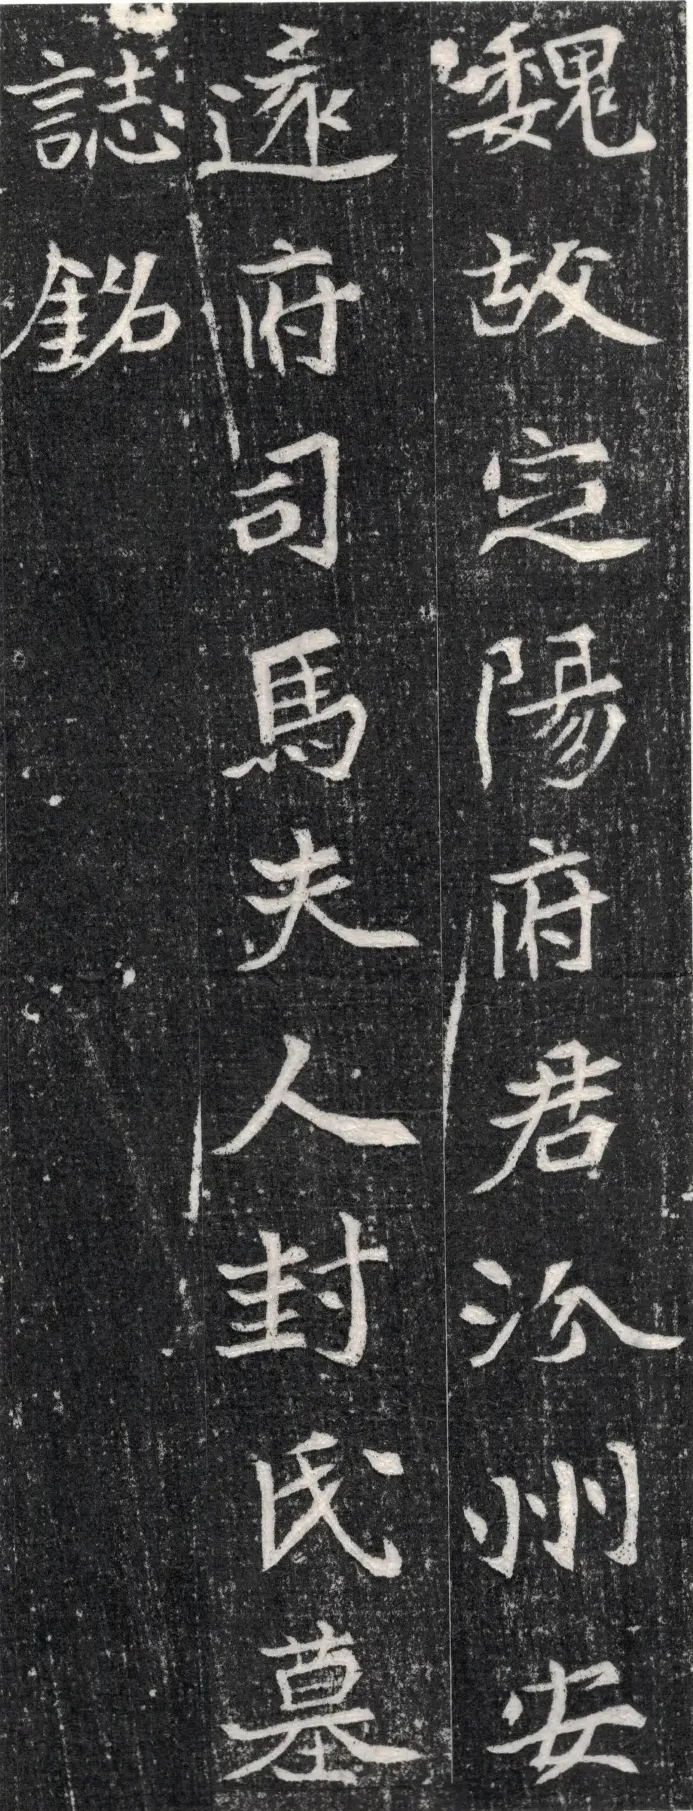 魏故定陽府君汾州安
遠府司馬夫人封氏墓
誌銘